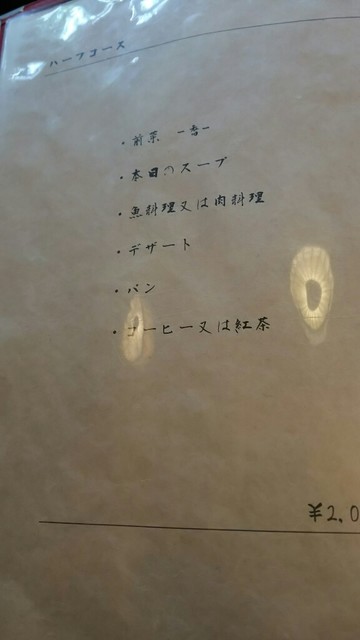 ハーフコース
・前菜 一番一
・本日のスープ
・魚料理又は肉料理
・デザート
・パン
・コーヒー又は紅茶
¥2,0